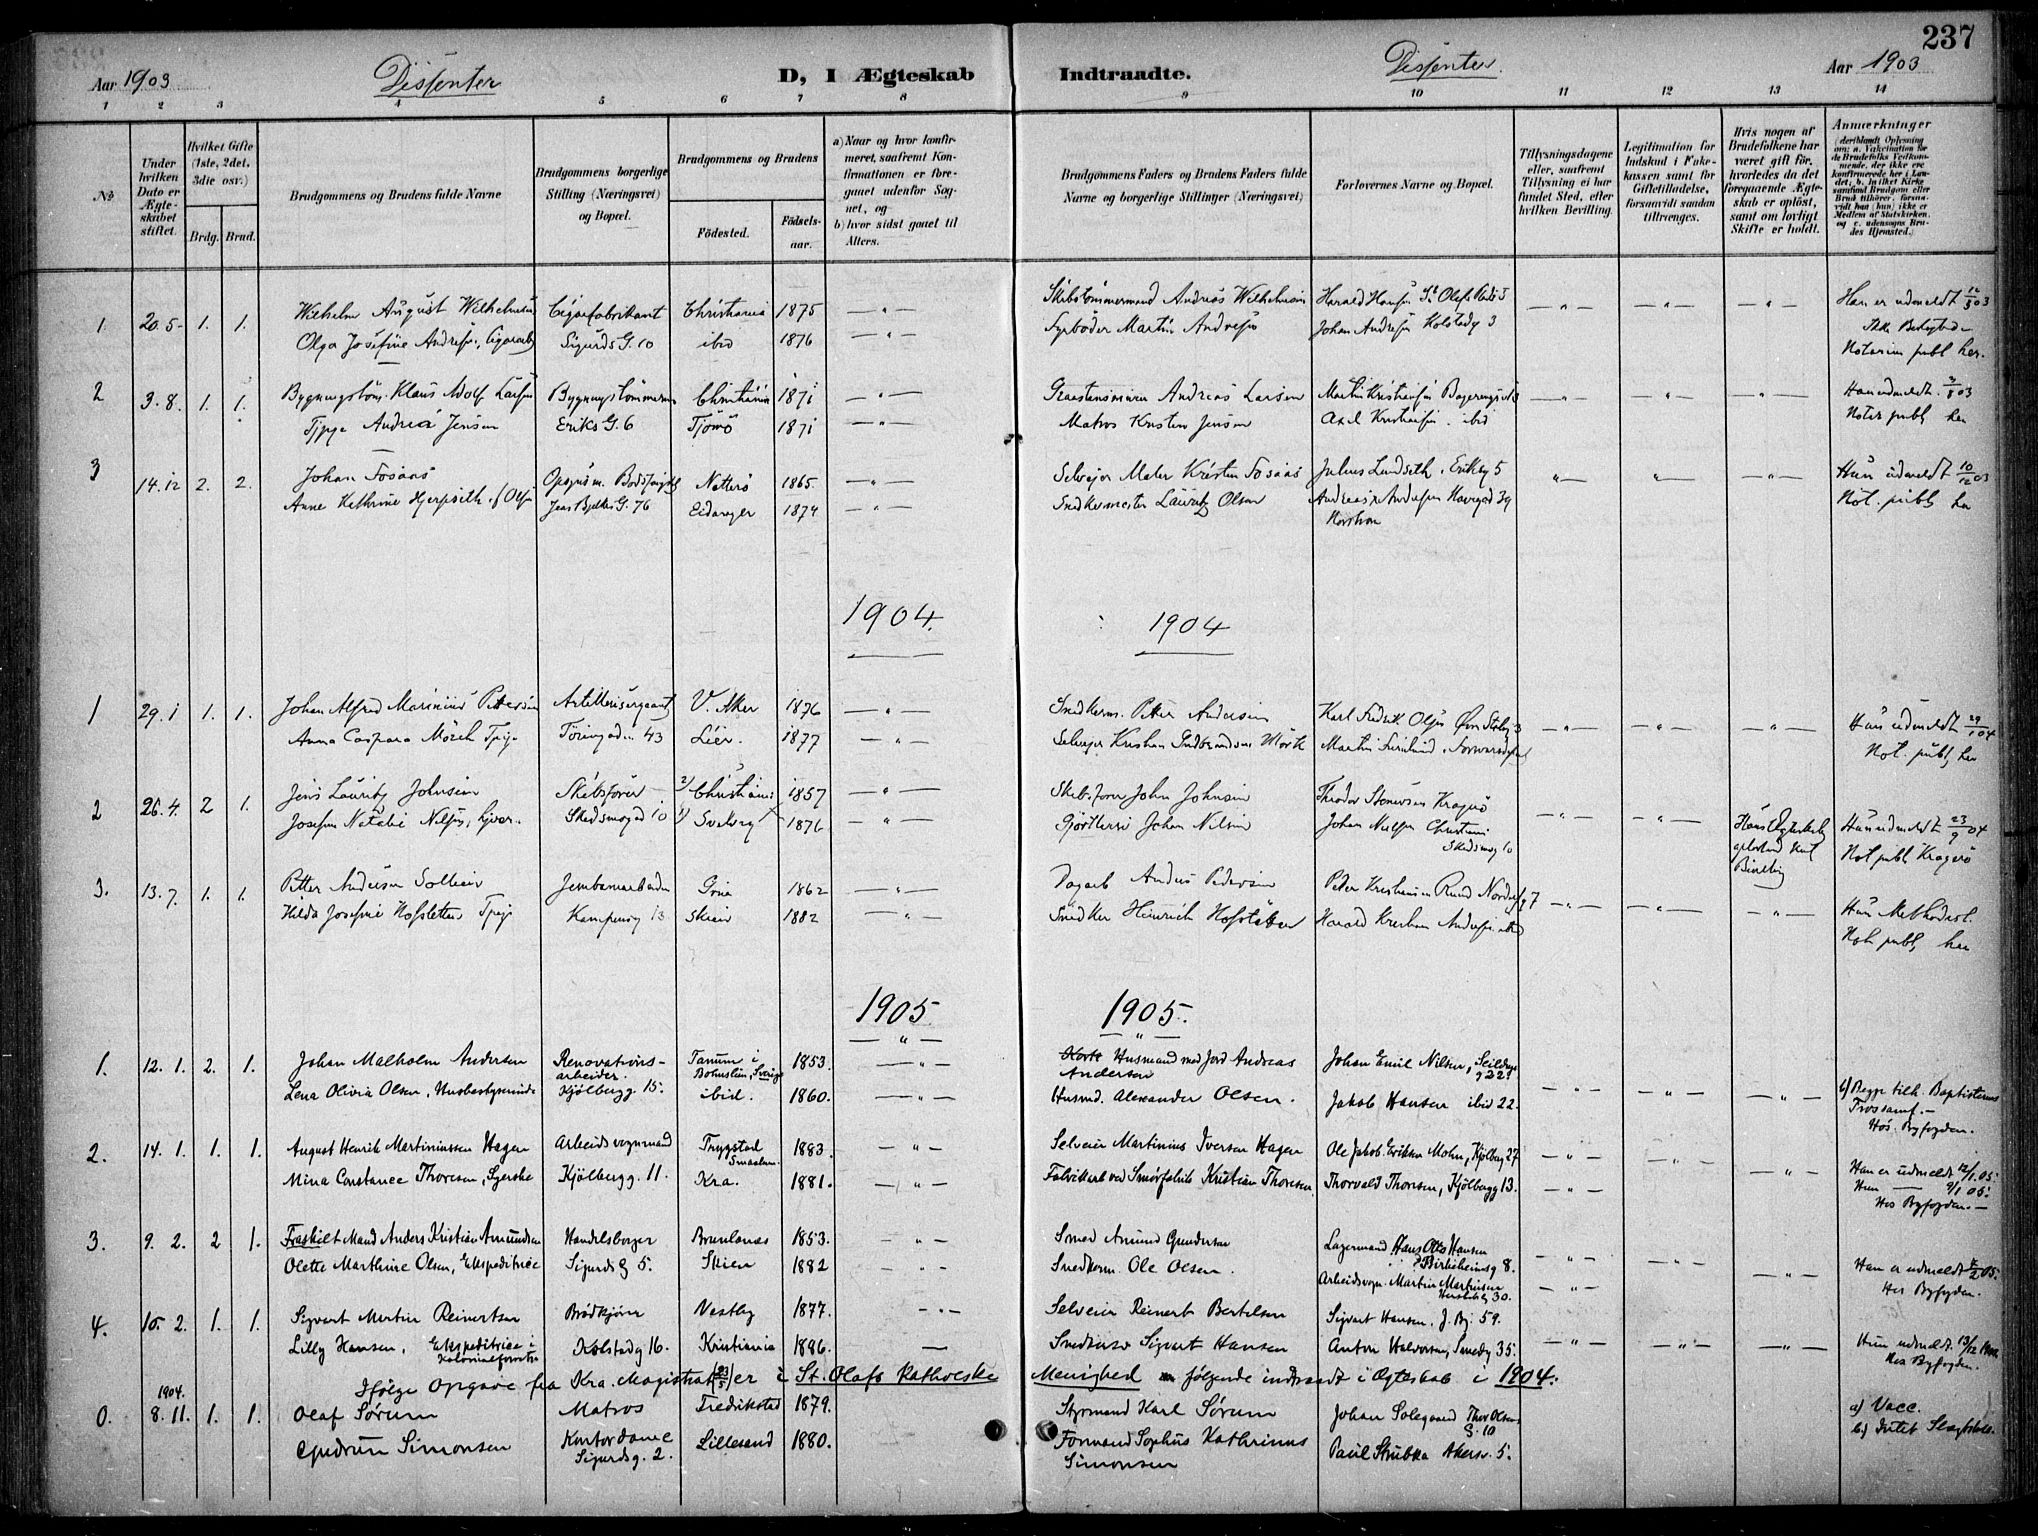 237
Aar 1903 Dissenter D, I Ægteskab Indtraadte. Dissenter. Aar 1903
1 2 3 4 5 6 7 8 9 10 11 12 13 14
№
Under hvilken Dato er Ægteskabet stiftet.
Hvilket Gifte (1ste, 2det, 3die osv.)
Brdg. Brud.
Brudgommens og Brudens fulde Navne
Brudgommens borgerlige Stilling (Næringsvei) og Bopæl.
Brudgommens og Brudens
Fødested. Fødselsaar.
a) Naar og hvor konfirmeret, saafremt Konfirmationen er foregaaet udenfor Sognet, og
b) hvor sidst gaaet til Alters.
Brudgommens Faders og Brudens Faders fulde Navne og borgerlige Stillinger (Næringsvei)
Forlovernes Navne og Bopæl.
Tillysningsdagene eller, saafremt Tillysning ei har fundet Sted, efter hvilken Bevilling.
Legitimation for Indskud i Enkekassen samt for Giftetilladelse, forsaavidt saadan tiltrænges.
Hvis nogen af Brudefolkene har været gift før, hvorledes da det foregaaende Ægteskab er opløst, samt om lovligt Skifte er holdt.
Anmærkninger
(deriblandt Oplysning om: a. Vakcination for de Brudefolks Vedkommende, der ikke ere konfirmerede her i Landet; b. i hvilket Kirkesamfund Brudgom eller Brud tilhører, forsaavidt han (hun) ikke er Medlem af Statskirken, og c. udensogns Brudes Hjemsted.)
1. 20.5. 1. 1. Wilhelm August Wilhelmsen Cigarfabrikant Christiania 1875 — „ — Skibstømmermand Andreas Wilhelmsen — „ — — „ — — „ — Han er udmeldt 12/5 03
Olga Josefine Andresen, Sigurds G. 10 ibid 1876 — „ — Fyrbøder Martin Andresen Johan Andresen Kolstadg 3
Notarius publ her.
2 3.8. 1. 1. Bygningstøm. Klaus Adolf Larsen Bygningstømmerm Christiania 1871 — „ — Andreas Larsen Martin Kristiansen — „ — — „ — — „ — Han udmeldt 3/8 03
Tjpge Andrea Jensen Eriks G. 6 Tjømø 1871 — „ — Matros Kristen Jensen Axel Kristiansen ibid Notar publ her
3 14.12 2. 2. Johan Fosaas Nøtterø 1865 — „ — Selveier Maler Kristen Fosaas Julius Lundseth, Eriksg 5 „ — „ — — „ — Hun udmeldt 10/12 03
Anne Kathrine Hjerpseth f. Olsen Jens Bjelkes G. 76 Eidanger 1874 — „ — Snedkermester Lauritz Olsen Andreas Andresen Havegad 39 Not. publ her
1904. 1904
1 29.1 1. 1. Johan Alfred Marinius Pettersen Artillerisergeant V. Aker 1876 — „ — Snedkerm. Petter Andersen Karl Fredrik Olsen — „ — — „ — — „ — Han udmeldt 29/1 04
Anna Caspara Mörch Tpige 43 Lier. 1877 — „ — Selveier Kristian Gudbrandsen Mörk Martin Not. publ, her
2 26.4. 2 1. Jens Lauritz Johnsen Skibsfører 2) Christiania 1857 — „ — Skibsfører John Johnsen Theodor Stenersen Kragerø — „ — — „ — Hans Ægteskab opløst ved Bevilling Hun udmeldt 23/9 04
Josefine Natalie Nilsen, Skedsmogd 10 1) Svelvig 1876 — „ — Gjørtler Johan Nilsen Johan Nielsen Christiania Skedsmog 10 Not publ Kragerø
3. 13.7. 1. 1. Petter Andersen Sollien Jernbanearbeider Grue 1862 — „ — Dagarb Anders Pedersen Peder Kristiansen Rund 7 — „ — — „ — — „ — Hun Methodist.
Hilda Josefine Hofstetter Tpige Kampensg 13 Skien 1882 — „ — Snedker Heinrich Hofstetter Harald Kristian Andresen ibid Not. publ, her
1905 1905.
1. 12. 1. 2. 1. Johan Malholm Andersen Renovationsarbeider. Tanum i Bohuslen, Sverige 1853. — „ — Husmand med Jord Andreas Andersen Johan Emil Nilsen, Seildugsg 22.
Lena Olivia Olsen, Husbestyrerinde Kjølbergg. 15. ibid. 1860. — „ — Husmd. Alexander Olsen. Jakob Hansen ibid 22. — „ — — „ — — „ — b) Begge tilh. Baptisternes Trossamf. — Hos. Byfogden.
2. 14. 1. 1. 1. August Henrik Martiniussen Hagen Arbeidsvognmand Trygstad Smaalene. 1883. — „ — Selveier Martinius Iversen Hagen Ole Jakob Eriksen Mohn, Kjølbg 27 — „ — — „ —
Mina Constance Thoresen, Syerske Kjølbergg. 11. Kra. 1881. — „ — Fabrikarb ved Smørfabrik Kristian Thoresen. Thorvald Thoresen, Kjølbergg 13. — „ — — „ — Han er udmeldt 12/1.05. Hun — 9/1 05. Hos Byfogden. —
3. 9. 2. 2 1. Fraskilt Mand Anders Kristian Amundsen Handelsborger Brunlanes 1853. — „ — Smed Amund Gundersen Lagermand Hans Otto Hansen Birkeheimsg 8.
Olette Marthine Olsen, Ekspeditrice Sigurdsg 5. Skien 1882 — „ — Snedkerm. Ole Olsen. Arbeidsvogn. Martin Martinsen 30. — „ — — „ — — „ — Han er udmeldt /2 05. Hos Byfogden.
4. 15. 2. 1. 1. Sigvart Martin Reinertsen Brødkjører Vestby 1877. — „ — Selveier Reinert Bertelsen Sigvart Hansen, J. Bj. 59.
Lilly Hansen, Ekspeditrice i Kolonialforretn. Kolstadg 16. Kristiania 1886. — Snedker Sigvart Hansen Anton Halvorsen, Smedg 35. — „ — — „ — — „ — Hun udmeldt 13/12 Hos Byfogden.
Ifølge Opgave fra Kra. Magistrat (23/5) er i St. Olafs Katholske Menighed følgende indtraadt i Ægteskab i 1904:
0. 1904. 8. 11. 1. 1. Olaf Sørum Matros Fredrikstad 1879. Styrmand Karl Sørum Johan Solegaard Thor Olsens G. 10 a) Vacc.
Gudrun Simonsen Kontordame Sigurdsg. 2. Lillesand 1880. Formand Sophus Kathrinus Simonsen Paul Strubka Akersv. 5. b.) Intet Slægtskab.